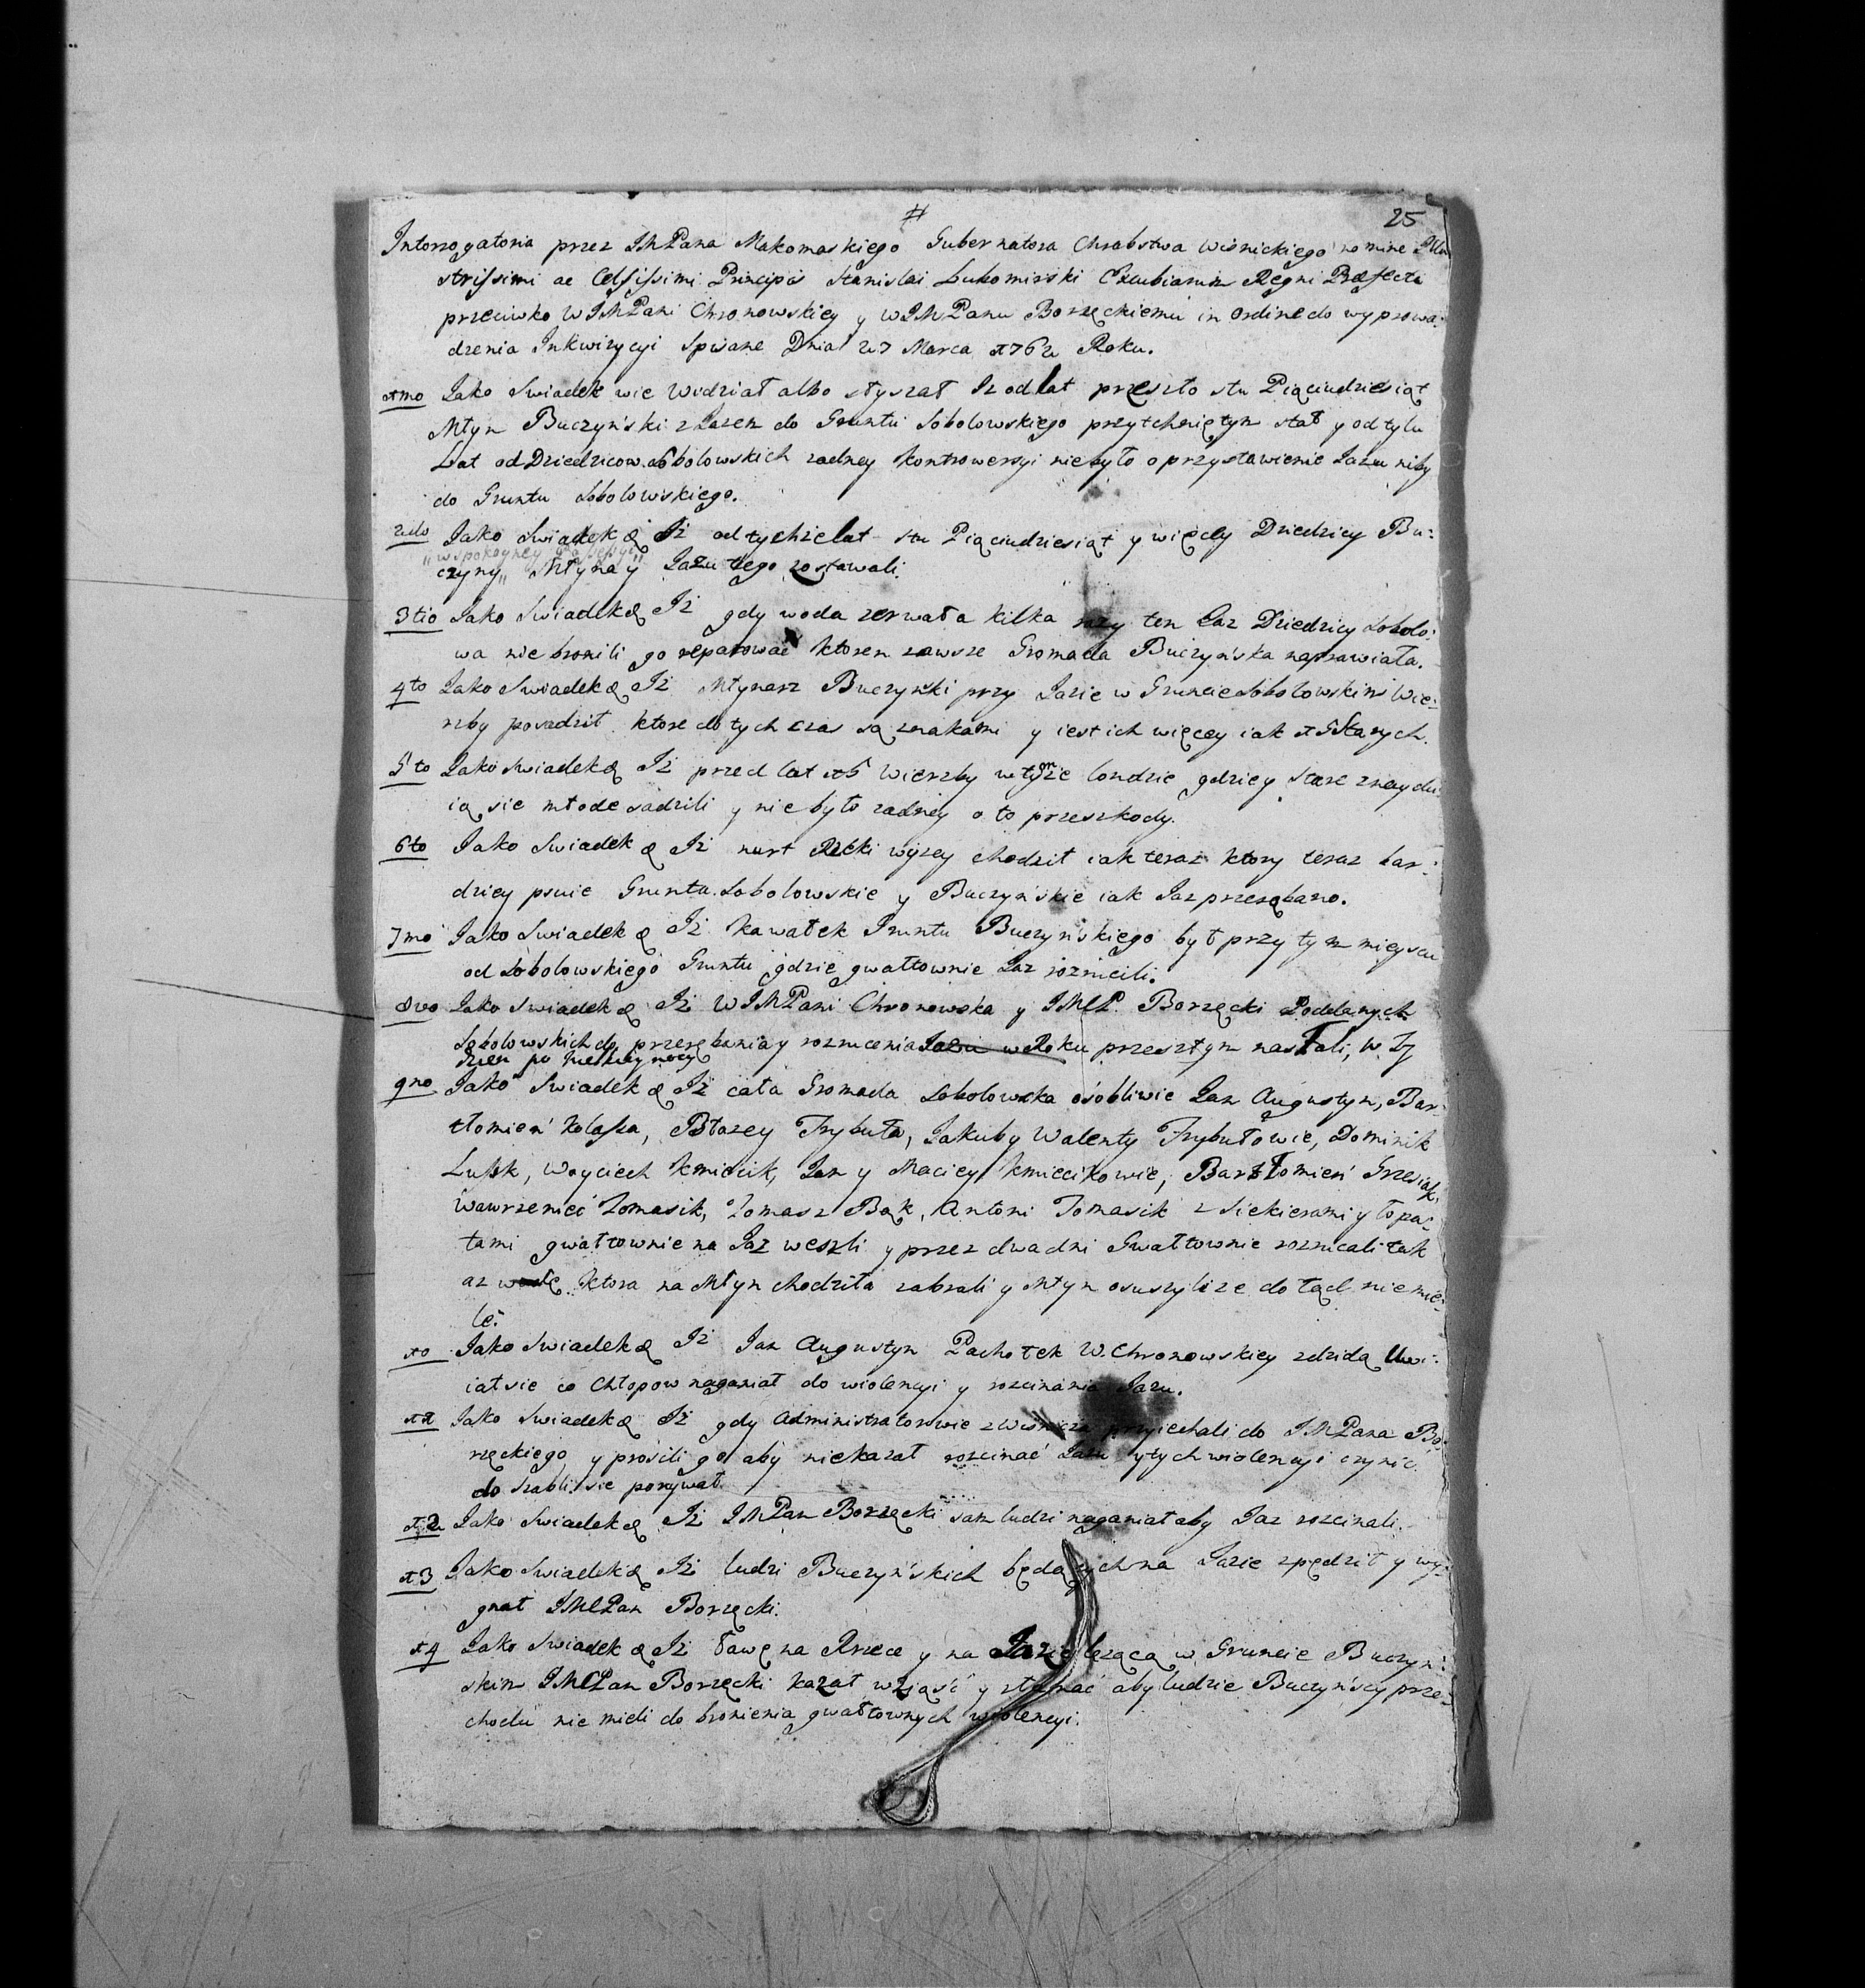 #
25
Interrogatoria przez JMPana Makomaskiego Gubernatora Chrabstwa Wisnickiego nomine Illu
strissimi ac Celsissimi Principis Stanislai Lubomirski Excubiarum Regni Præfecti
przeciwko WJMPani Chronowskiey y WJMPanu Borzęckiemu in ordine do wyprowa:
dzenia Inkwizycyi spisane Dnia 27 Marca 1762 Roku.
1mo Jako Swiadek wie widział albo słyszał Iz od lat przeszło stu Piąciudziesiąt
Młyn Buczyński z Jazem do Gruntu Sobolowskiego przytchniętym stał y od tylu
Lat od Dziedzicow Sobolowskich zadney kontrowersyi niebyło o przystawienie Jazu niby
do Gruntu Sobolowskiego.
2do Jako Swiadek & Iż od tychże lat stu Piąciudziesiąt y więcey Dziedzicy Bu:
„w spokoyney possessyi„
czyny„ Młyna y Jazu tego zostawali.
3tio Jako Swiadek & Iż gdy woda zerwała kilka razy ten Jaz Dziedzicy Sobolo:
wa nie bronili go reparować ktoren zawsze Gromada Buczyńska naprawiała.
4to Jako Swiadek & Iż Młynarz Buczyński przy Jazie w Gruncie Sobolowskim Wie:
rzby posadził ktore do tych czas są znakami y iest ich więcey iak 15 Starych.
5to Jako Swiadek & Iż przed lat 15 Wierzby w tymże londzie gdziey stare znaydu
ią się młode sadzili y nie było zadney o to przeszkody.
6to Jako Swiadek & Iż nurt Rzeki wyzey chodził iak teraz ktory teraz bar:
dziey psuie Grunta Sobolowskie y Buczyńskie iak Jaz przerąbano.
7mo Jako Swiadek & Iż kawałek Gruntu Buczyńskiego był przy tym mieyscu
od Sobolowskiego Gruntu gdzie gwałtownie Jaz roznicili.
8vo Jako Swiadek & Iż WJMPani Chronowska y JMCP. Borzęcki Poddanych
Sobolowskich do przerębania y roznucenia Jazu w Roku przeszłym nasłali, w
dzien po
9no Jako Swiadek & Iż cała Gromada Sobolowska osobliwie Jan Augustyn, Bar:
tłomień Kolassa, Błazey Trybuła, Jakub y Walenty Trybułowie, Dominik
Lussk, Woyciech Kmiecik, Jan y Maciey Kmiecikowie, Bartłomień Grzesiak,
Wawrzeniec Tomasik, Tomasz Bąk, Antoni Tomasik z Siekierami y łopa:
tami gwałtownie na Jaz weszli y przez dwa dni Gwałtownie roznicali tak
az wodę ktora na Młyn chodziła zabrali y Młyn osuszyli ze do tąd nie mie:
le.
10 Jako Swiadek & Iż Jan Augustyn Pachołek W. Chronowskiey zdzidą Uwi:
iał sie co Chłopow naganiał do wiolencyi y rozcinania Jazu.
11 Jako Swiadek & Iż gdy Administratorowie z Wisnicza przyiechali do JMPana Bo:
rzęckiego y prosili go aby niekazał rozcinać Jazu y tych wiolencyi czynić
do szabli sie porywał.
12 Jako Swiadek & Iż JMPan Borzęcki sam ludzi naganiał aby Jaz rozcinali.
13 Jako Swiadek & Iż ludzi Buczyńskich będących na Jazie zpędził y wy:
gnał JMCPan Borzęcki.
14 Jako Swiadek & Iż ławę na Rzece y na Jazie leżącą w Gruncie Buczyń:
skim JMCPan Borzęcki kazał wziąść y złamać aby ludzie Buczyńscy prze:
chodu nie mieli do bronienia gwałtownych wiolencyi.